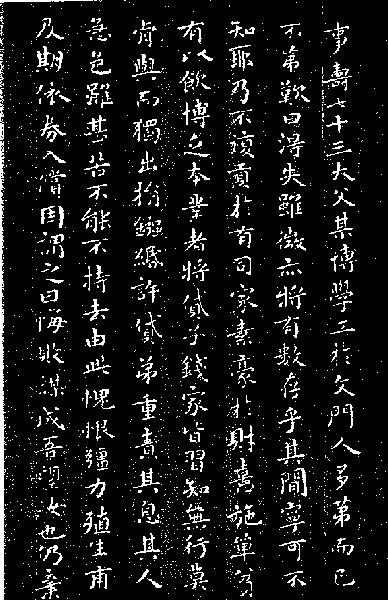 事壽七十三大父其博學工於文門人多第而己
不弟歎曰得失雖微亦將有數存乎其間寧可不
知耶乃不復貢於有司家素豪於財喜施單窮
有以飲博乏本業者將貸子錢家皆習知無行莫
肯與而獨出於鏹緡許貸弟重責其息其人
急色雖甚苦不能不持去由此愧恨彊力殖生甫
及期依券入償因謂之曰悔收謀成吾望女也仍棄